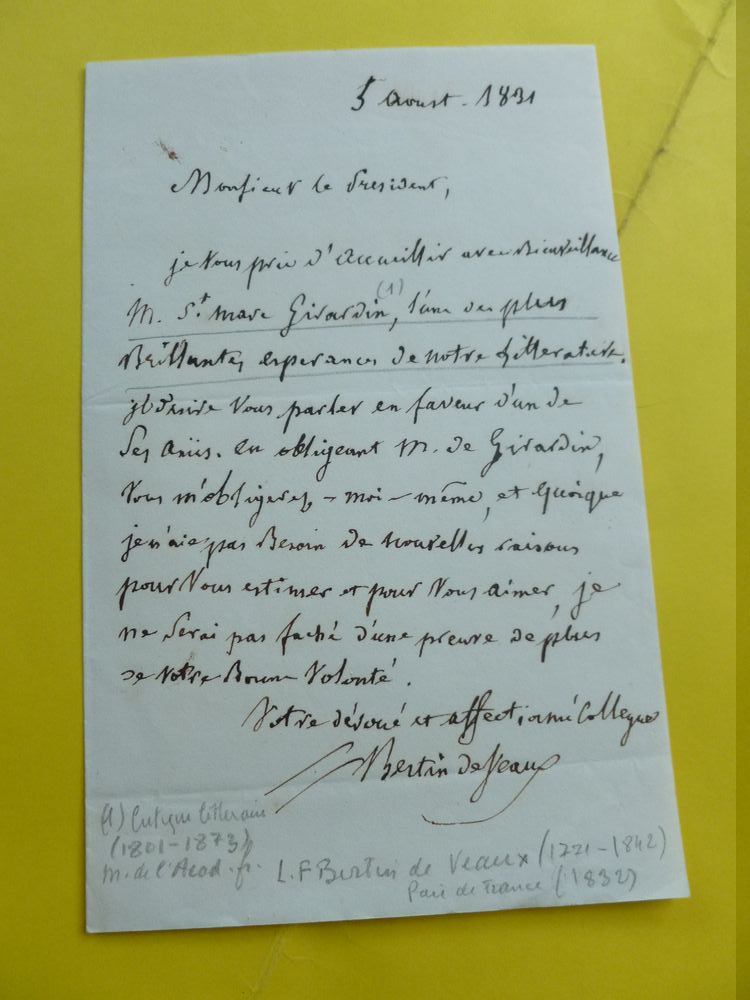 5 Aoust - 1831
Monsieur le President,
je vous prie d'accueillir avec Bienveillance
M. St marc Girardin, (1) l'une des plus
Brillantes esperances de notre Litterature.
il Desire vous parler en faveur d'un de
Ses amis. en obligeant M. de Girardin,
vous m'obligerez - moi - même, et quoique
je n'aie pas Besoin de nouvelles raisons
pour vous estimer et pour vous aimer, je
ne serai pas faché d'une preuve de plus
de votre Bonne volonté.
Votre dévoué et affectionné Collegue
Bertin deVeaux
(1) Critique litteraire
(1801-1873)
m. de l'Acad. fr.
L. F Bertin de Veaux (1771-1842)
Pair de France (1832)